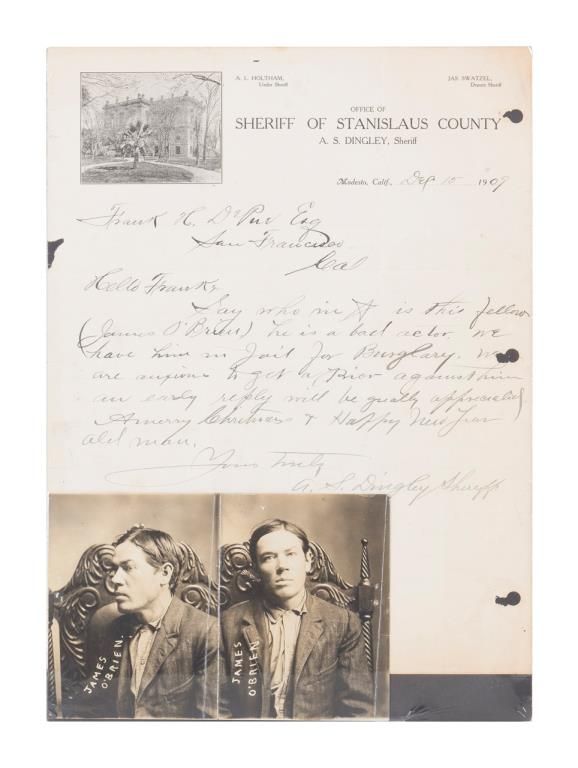 A. L. HOLTHAM,
Under Sheriff
JAS. SWATZEL,
Deputy Sheriff
OFFICE OF
SHERIFF OF STANISLAUS COUNTY
A. S. DINGLEY, Sheriff
Modesto, Calif., Dec 10 1909
Frank H. Esq
San Francisco
Cal
Hello Frank,
Say who in is this fellow
(James O'Brien) he is a bad actor. we
have him in Jail for Burglary. We
are anxious to get a Prior against him
an early reply will be greatly appreciated
A merry Christmas & Happy New Year
old man.
Yours Truly
A. S. Dingley Sheriff
JAMES
O'BRIEN.
JAMES
O'BRIEN